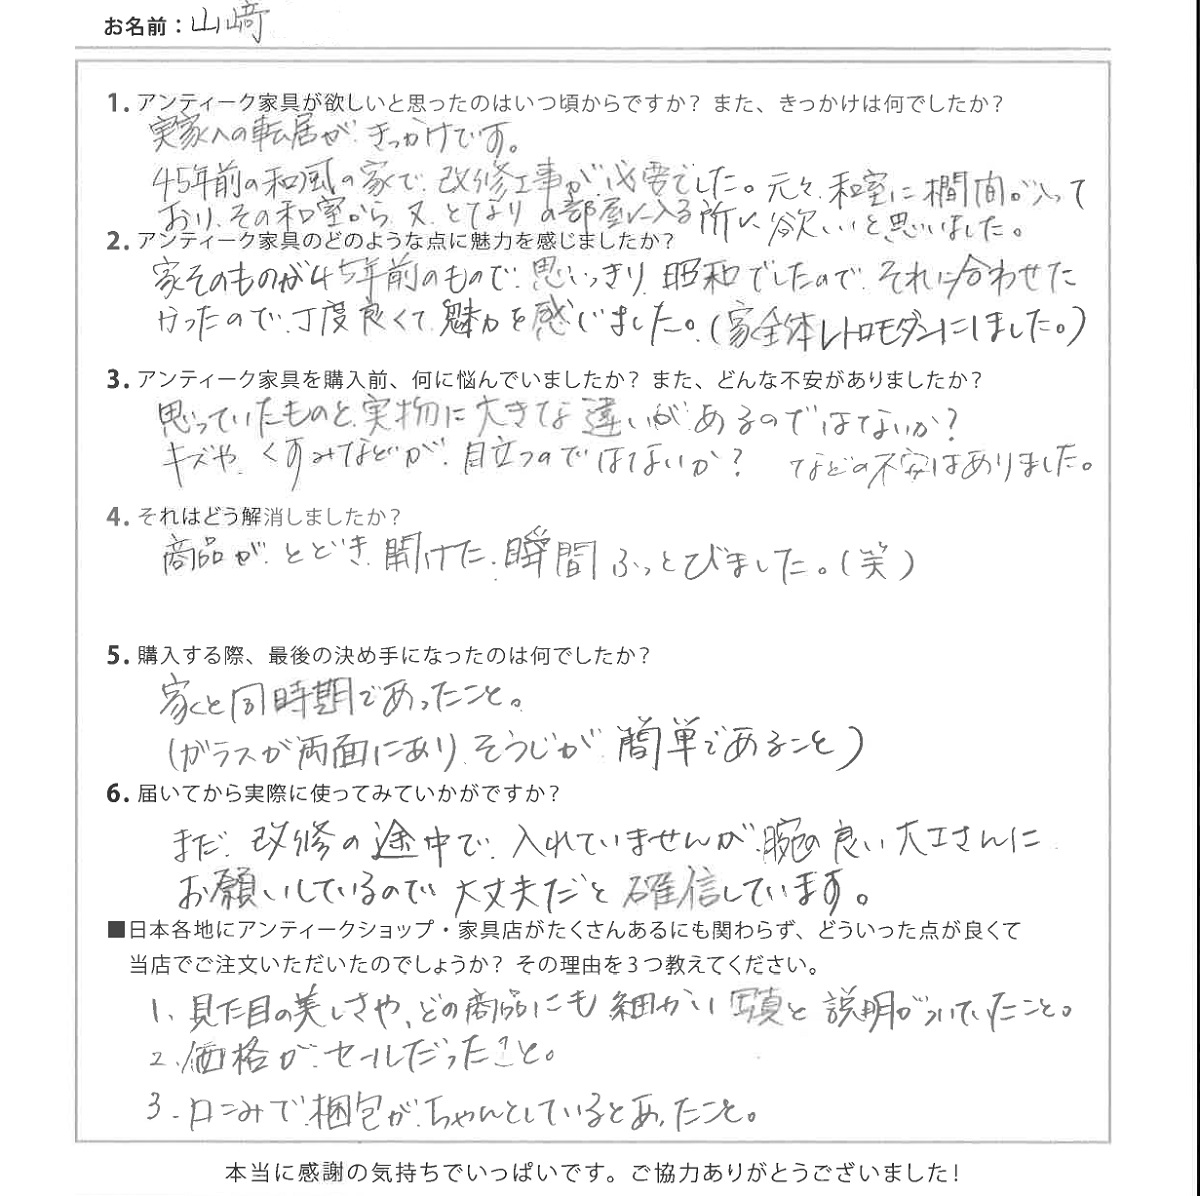 お名前：山﨑
1. アンティーク家具が欲しいと思ったのはいつ頃からですか？ また、きっかけは何でしたか？
実家への転居が、きっかけです。
45年前の和風の家で、改修工事が、必要でした。元々、和室に欄間が入って
おり、その和室から、又、となりの部屋に入る所に欲しいと思いました。
2. アンティーク家具のどのような点に魅力を感じましたか？
家そのものが45年前のもので、思いっきり、昭和でしたので、それに合わせた
かったので、丁度良くて、魅力を感じました。（家全体レトロモダンにしました。）
3. アンティーク家具を購入前、何に悩んでいましたか？ また、どんな不安がありましたか？
思っていたものと、実物に大きな違いがあるのではないか？
キズや、くすみなどが、目立つのではないか？ などの不安はありました。
4. それはどう解消しましたか？
商品が、とどき、開けた、瞬間ふっとびました。（笑）
5. 購入する際、最後の決め手になったのは何でしたか？
家と同時期であったこと。
（ガラスが両面にあり、そうじが、簡単であること）
6. 届いてから実際に使ってみていかがですか？
まだ、改修の途中で、入れていませんが、腕の良い大工さんに
お願いしているので大丈夫だと確信しています。
■日本各地にアンティークショップ・家具店がたくさんあるにも関わらず、どういった点が良くて
当店でご注文いただいたのでしょうか？ その理由を３つ教えてください。
1、見た目の美しさや、どの商品にも細かい写真と説明がついていたこと。
2、価格が、セールだったこと。
3、口こみで、梱包が、ちゃんとしているとあったこと。
本当に感謝の気持ちでいっぱいです。ご協力ありがとうございました！